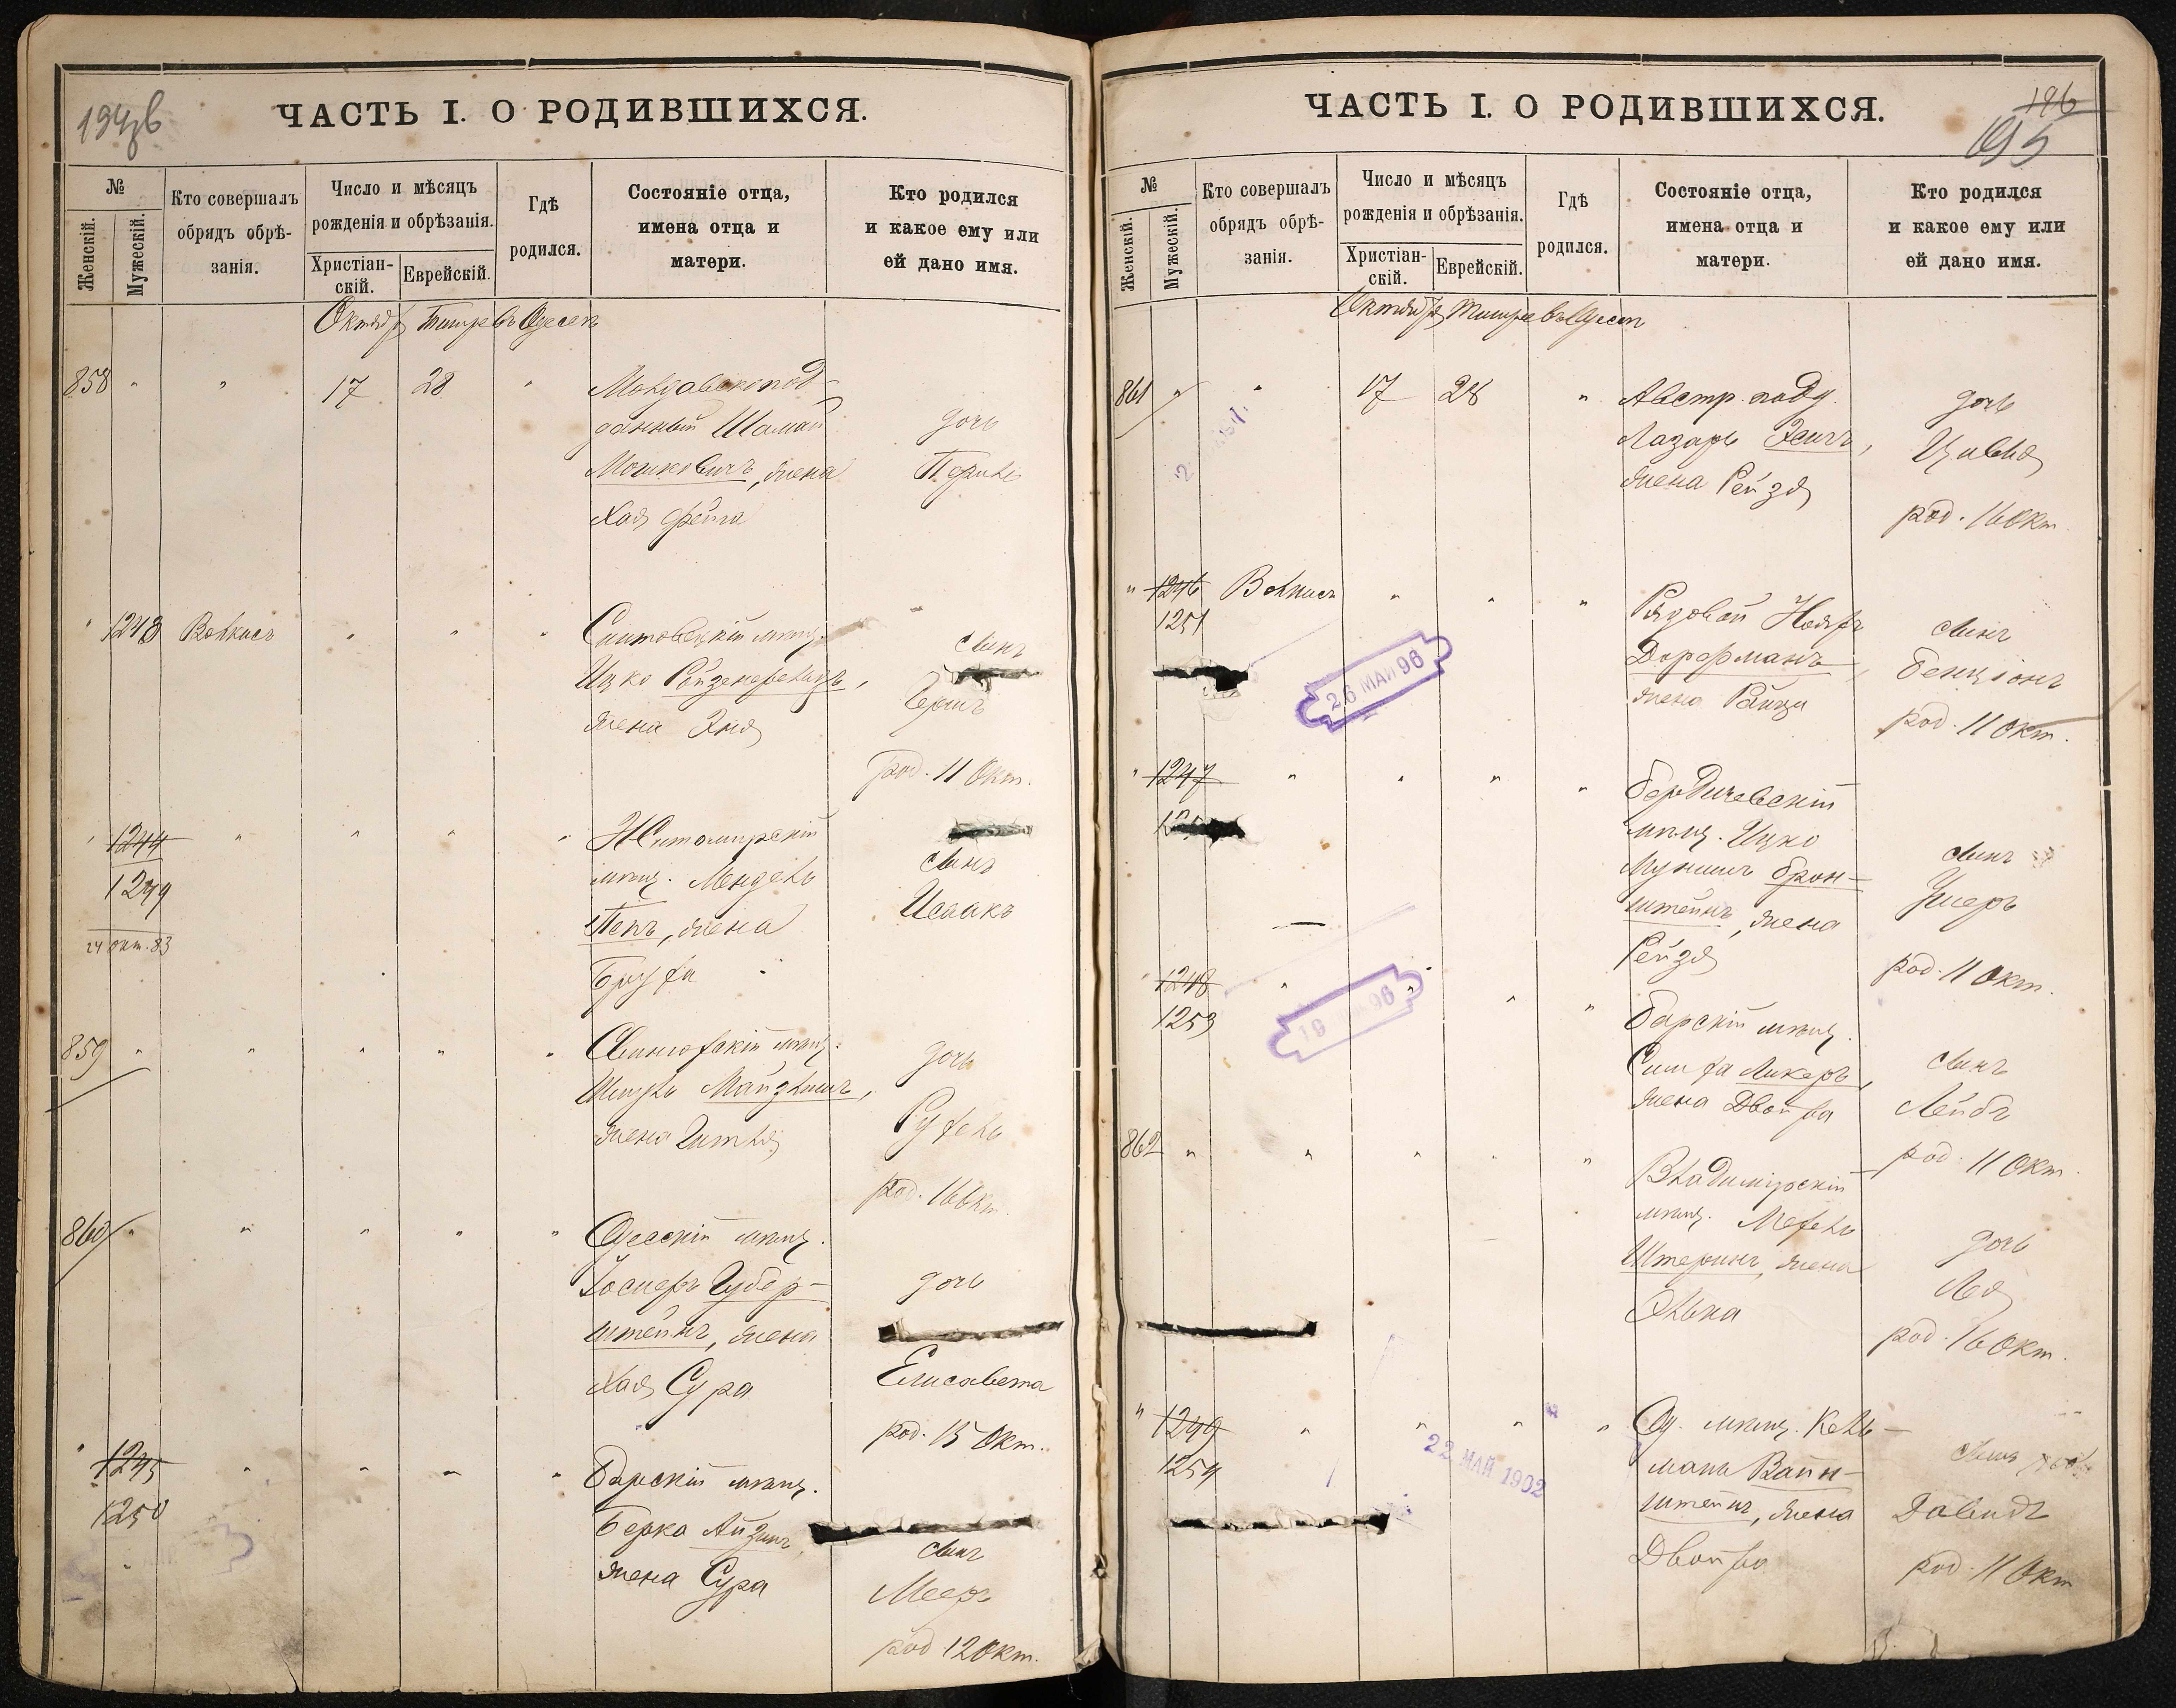 194об
ЧАСТЬ I. О РОДИВШИХСЯ.
№
Женскій.
Мужескій.
Кто совершалъ
обрядъ обрѣ-
занія.
Число и мѣсяцъ
рожденія и обрѣзанія.
Христіан-
скій.
Еврейскій.
Гдѣ
родился.
Состояніе отца,
имена отца и
матери.
Кто родился
и какое ему или
ей дано имя.
Октябр Тишре въ Одессѣ
858 " " 17 28 "
Молдавскопод-
данный
Мошковичъ, жена
Хая Фейга
дочь
Перль
" 1248 Волкисъ " " "
мѣщ.
Ицко
жена Эня
сынъ
Гершъ
род. 11 Окт.
" 1244 " " " "
1249
24 окт. 83
Житомирскій
мѣщ. Мендель
Пепъ, жена
Бруха
сынъ
Исаакъ
859 " " " " "
мѣщ.
жена Гитля
дочь
Рухель
род. 16 Окт.
860 " " " " "
Одесскій мѣщ.
Іосифъ Губер-
штейнъ, жена
Хая Сура
дочь
Елисавета
род. 15 Окт.
" 1245 " " " "
1250
Барскій мѣщ.
Берко Айзинъ,
жена Сура
сынъ
Мееръ
род 12 Окт.
ЧАСТЬ I. О РОДИВШИХСЯ.
196
195
№
Женскій.
Мужескій.
Кто совершалъ
обрядъ обрѣ-
занія.
Число и мѣсяцъ
рожденія и обрѣзанія.
Христіан-
скій.
Еврейскій.
Гдѣ
родился.
Состояніе отца,
имена отца и
матери.
Кто родился
и какое ему или
ей дано имя.
Октябр Тишре въ Одессѣ
861 " " 17 28 "
Австр. подд.
Лазарь
жена Рейзя
дочь
Цивья
род. 16 Окт.
" 1246 Волкисъ " " "
1251
26 МАЙ 96
Рядовой
Дорфманъ,
жена Райца
сынъ
Бенціонъ
род. 11 Окт.
" 1247 " " " "
Бердичевскій
мѣщ. Ицко
Мунишъ Брон-
штейнъ, жена
Рейзя
сынъ
Ушеръ
род. 11 Окт.
" 1248 " " " "
1253
19 96
Барскій мѣщ.
Симха Ликеръ,
жена Двойра
сынъ
Лейбъ
род. 11 Окт.
862 " " " " "
Владимірскій
мѣщ. Мехель
Штеринъ, жена
Элька
дочь
Лея
род. 16 Окт.
" 1249 " " " "
1254
22 МАЙ 1902
Од. мѣщ. Кель-
манъ Вайн-
штейнъ, жена
Двойра
сынъ
Давидъ
род. 11 Окт